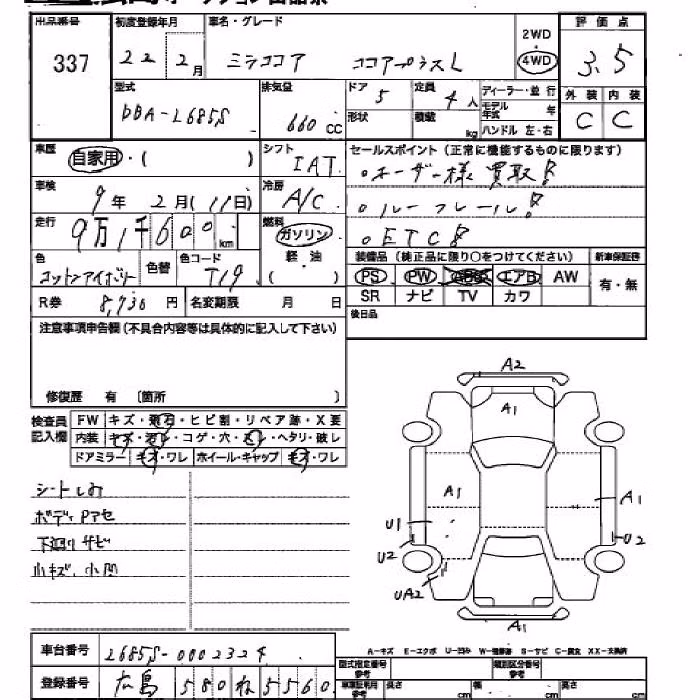 出品番号 初度登録年月 車名・グレード 2WD 評価点
337 22 2月 ミラココア ココアプラスL 4WD 3.5
型式 排気量 ドア 5 定員 4人 ディーラー・並行 外装 内装
DBA-L685S 660 CC 形状 積載 kg モデル年式 年 C C
ハンドル 左・右
車歴 自家用・( ) シフト IAT セールスポイント(正常に機能するものに限ります)
車検 9年 2月(11日) 冷房 A/C 。オーナー様買取!
走行 9万1千600km 燃料 ガソリン 。ルーフレール!
軽油 ( ) 。ETC!
色 コットンアイボリー 色替 色コード T19 装備品(純正品に限り○をつけてください) 新車保証書
PS PW ABS エアB AW 有・無
R券 8,730円 名変期限 月 日 SR ナビ TV カワ
注意事項申告欄(不具合内容等は具体的に記入して下さい) 後日品
修復歴 有 〔箇所 〕
検査員記入欄 FW キズ・飛石・ヒビ割・リペア跡・X要
内装 キズ・汚レ・コゲ・穴・スレ・ヘタリ・破レ
ドアミラー キズ・ワレ ホイール・キャップ キズ・ワレ
A2
A1
A1 A1
U1
U2 U2
UA2
シートしみ
ボディPアセ
下廻りサビ
小キズ、小凹
A-キズ E-エクボ U-凹み W-補修跡 S-サビ C-腐食 XX-交換済
車台番号 L685S-0002324
登録番号 広島 580 ね 5560
型式指定番号 参考 類別区分番号 参考
長さ cm 幅 cm 高さ cm